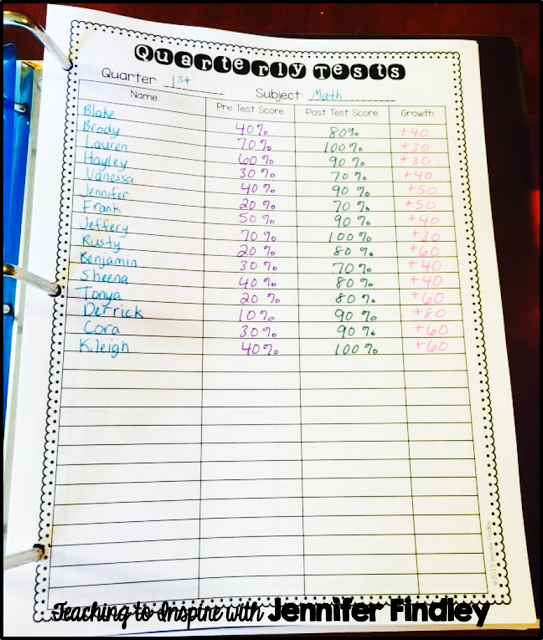 Quarterly Tests
Quarter: 1st Subject: Math
Name Pre Test Score Post Test Score Growth
Blake 40% 80% +40
Brody 70% 100% +30
Lauren 60% 90% +30
Hayley 30% 70% +40
Vanessa 40% 90% +50
Jennifer 20% 70% +50
Frank 50% 90% +40
Jeffery 70% 100% +30
Rusty 20% 80% +60
Benjamin 30% 70% +40
Sheena 40% 80% +40
Tonya 20% 80% +60
Derrick 10% 90% +80
Cora 30% 90% +60
Kileigh 40% 100% +60
Teaching to Inspire with Jennifer Findley